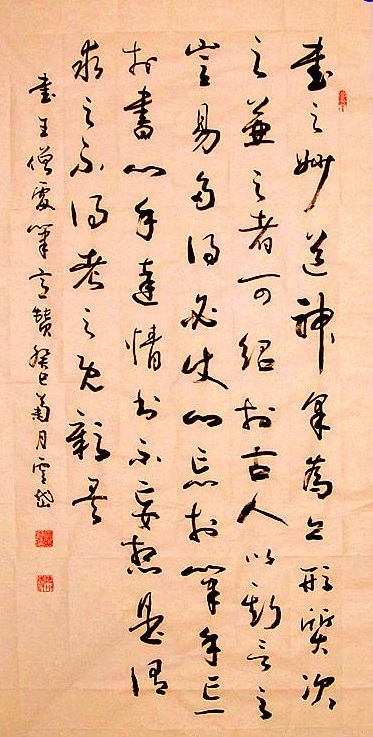 書之妙道神采為上形質次
之兼之者可紹於古人以斯言之
豈易多得必使心忘於筆手忘
於書心手達情書不妄想是謂
求之不得考之彰矣
書王僧虔筆意贊癸巳菊月雲岱